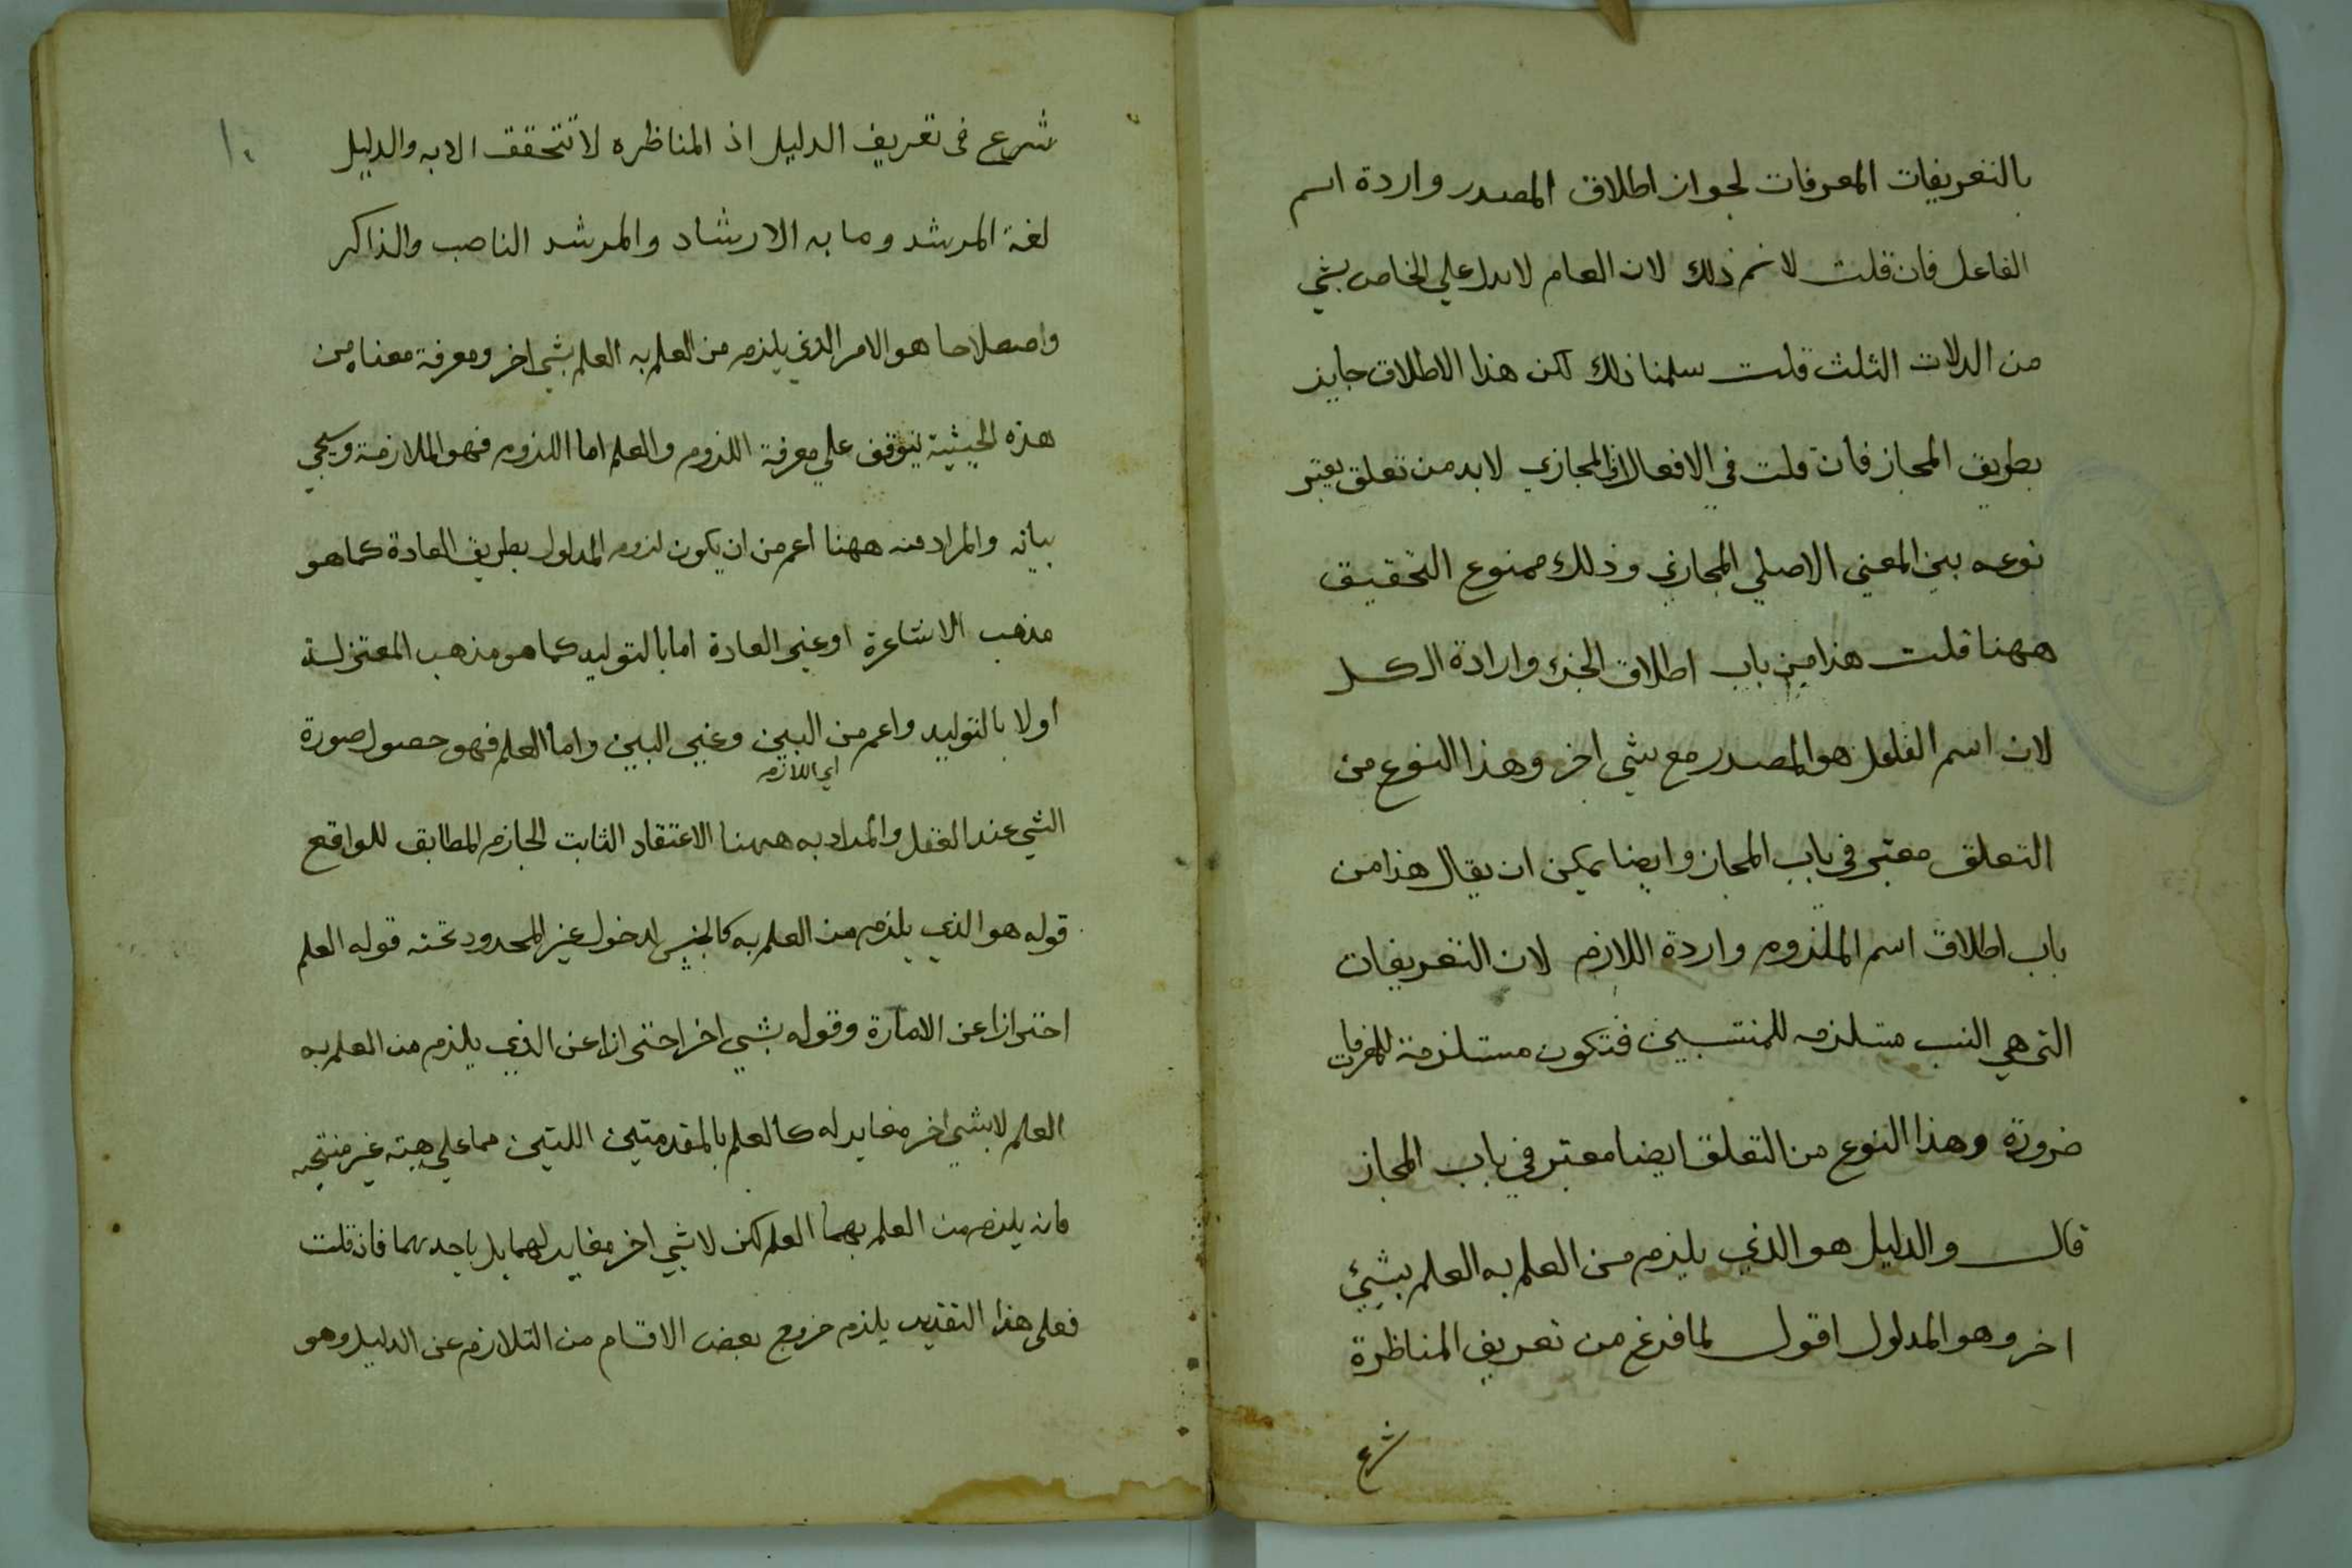 بالتعريفات المعرفات لجواز اطلاق المصدر واردة اسم
الفاعل فان قلت لا نم ذلك لان العام لا يدل علي الخاص بشي
من الدلات الثلث قلت سلمنا ذلك لكن هذا الاطلاق جايز
بطريق المجاز فان قلت في الافعال المجازي لابد من تعلق يعتبر
نوعه بين المعني الاصلي المجازي وذلك ممنوع التحقيق
ههنا قلت هذا من باب اطلاق الجزء وارادة الكل
لان اسم الفاعل هو المصدر مع شي اخر وهذا النوع من
التعلق معتبر في باب المجاز وايضا يمكن ان يقال هذا من
باب اطلاق اسم الملزوم واردة اللازم لان التعريفات
التي هي النسب متسلزمه للمنتسبين فتكون مستلزمة للمعرفات
ضرورة وهذا النوع من التعلق ايضا معتبر في باب المجاز
قال والدليل هو الذي يلزم من العلم به العلم بشيئ
اخر وهو المدلول اقول لما فرغ من تعريف المناظرة
شرع
١٠
شرع فى تعريف الدليل اذ المناظره لا تتحقق الا به والدليل
لغة المرشد وما به الارشاد والمرشد الناصب والذاكر
واصطلاحا هو الامر الذي يلزم من العلم به العلم بشي اخر ومعرفة معناه من
هذه الحيثية يتوقف علي معرفة اللزوم والعلم اما اللزوم فهو الملازمة وسيجي
بيانه والمراد منه ههنا اعم من ان يكون لزوم المدلول بطريق العادة كما هو
مذهب الاشاعرة او غير العادة اما بالتوليد كما هو مذهب المعتزلة
اولا بالتوليد واعم من البين وغير البين واما العلم فهو حصول صورة
اي اللازم
الشي عند العقل والمراد به ههنا الاعتقاد الثابت الجازم المطابق للواقع
قوله هو الذي يلزم من العلم به كالجنس لدخول غير المحدود تحته قوله العلم
احترازا عن الامارة وقوله بشي اخر احترازا عن الذي يلزم من العلم به
العلم لا بشي اخر مغاير له كالعلم بالمقدمتين اللتين هما علي هيئة غير منتجه
فانه يلزم من العلم بهما العلم لكن لا شي اخر مغاير لهما بل باحديهما فان قلت
فعلى هذا التقدير يلزم خروج بعض الاقسام من التلازم عن الدليل وهو